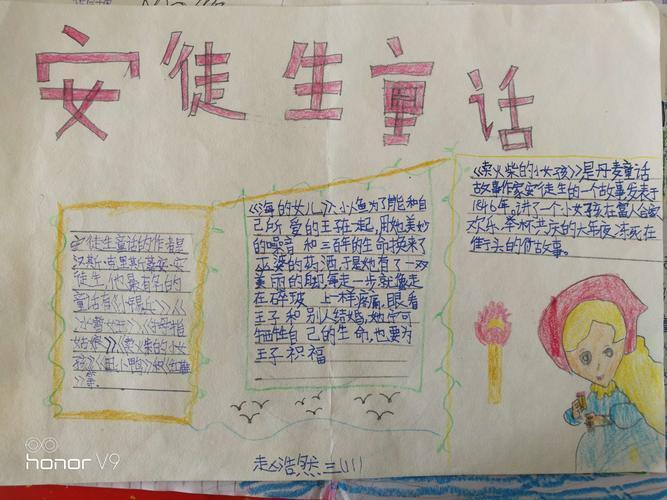 安徒生童话
安徒生童话的作者是
汉斯·克里斯蒂安·安
徒生,他最有名的
童话有《小锡兵》《
冰雪女王》《拇指
姑娘》《卖火柴的小女
孩》《丑小鸭》和《红鞋
》等。
《海的女儿》小人鱼为了能和自
己所爱的王子在一起,用她美妙
的嗓音和三百年的生命换来了
巫婆的药酒,于是她有了一双
美丽的腿,每走一步就像走
在碎玻 上一样疼痛,眼看
王子和别人结婚,她宁可
牺牲自己的生命,也要为
王子祝福
《卖火柴的小女孩》是丹麦童话
故事作家安徒生的一个故事发表于
1846年。讲了一个小女孩在富人合家
欢乐,举杯共庆的大年夜,冻死在
街头的 故事。
赵浩然三
honor V9